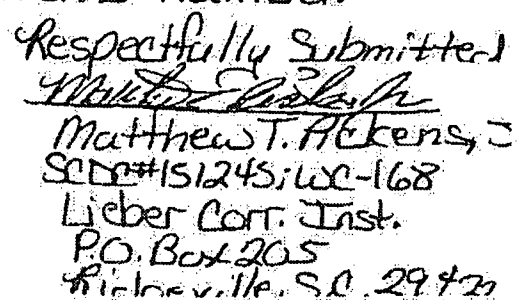 Respectfully Submitted
Matthew T. Ackens, J
SCDC#151245; WC-168
Lieber Corr. Inst.
P.O. Box 205
Ridgeville, S.C. 29472